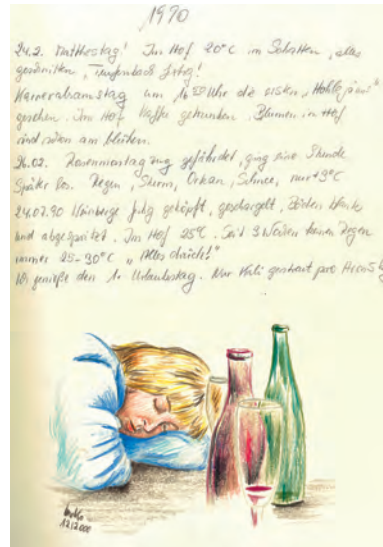 1990
24.2. Matthestag! Im Hof 20°C im Schatten, alles
geschnitten, fertig!
um 16 Uhr die ersten
gesehen. Im Hof Kaffe getrunken. Blumen im Hof
sind schon am blühen.
26.02. Rosenmontagzug gefährdet, ging eine Stunde
später los. Regen, Sturm, Orkan, Schnee, nur +3°C
24.07.90 Weinberge fertig geköpft, Böden
und abgespritzt. Im Hof 25°C. Seit 3 Wochen keinen Regen
immer 25-30°C „Alles durch!“
Wir genieße den 1. Urlaubstag. Nur Kali gestreut pro
12/2000